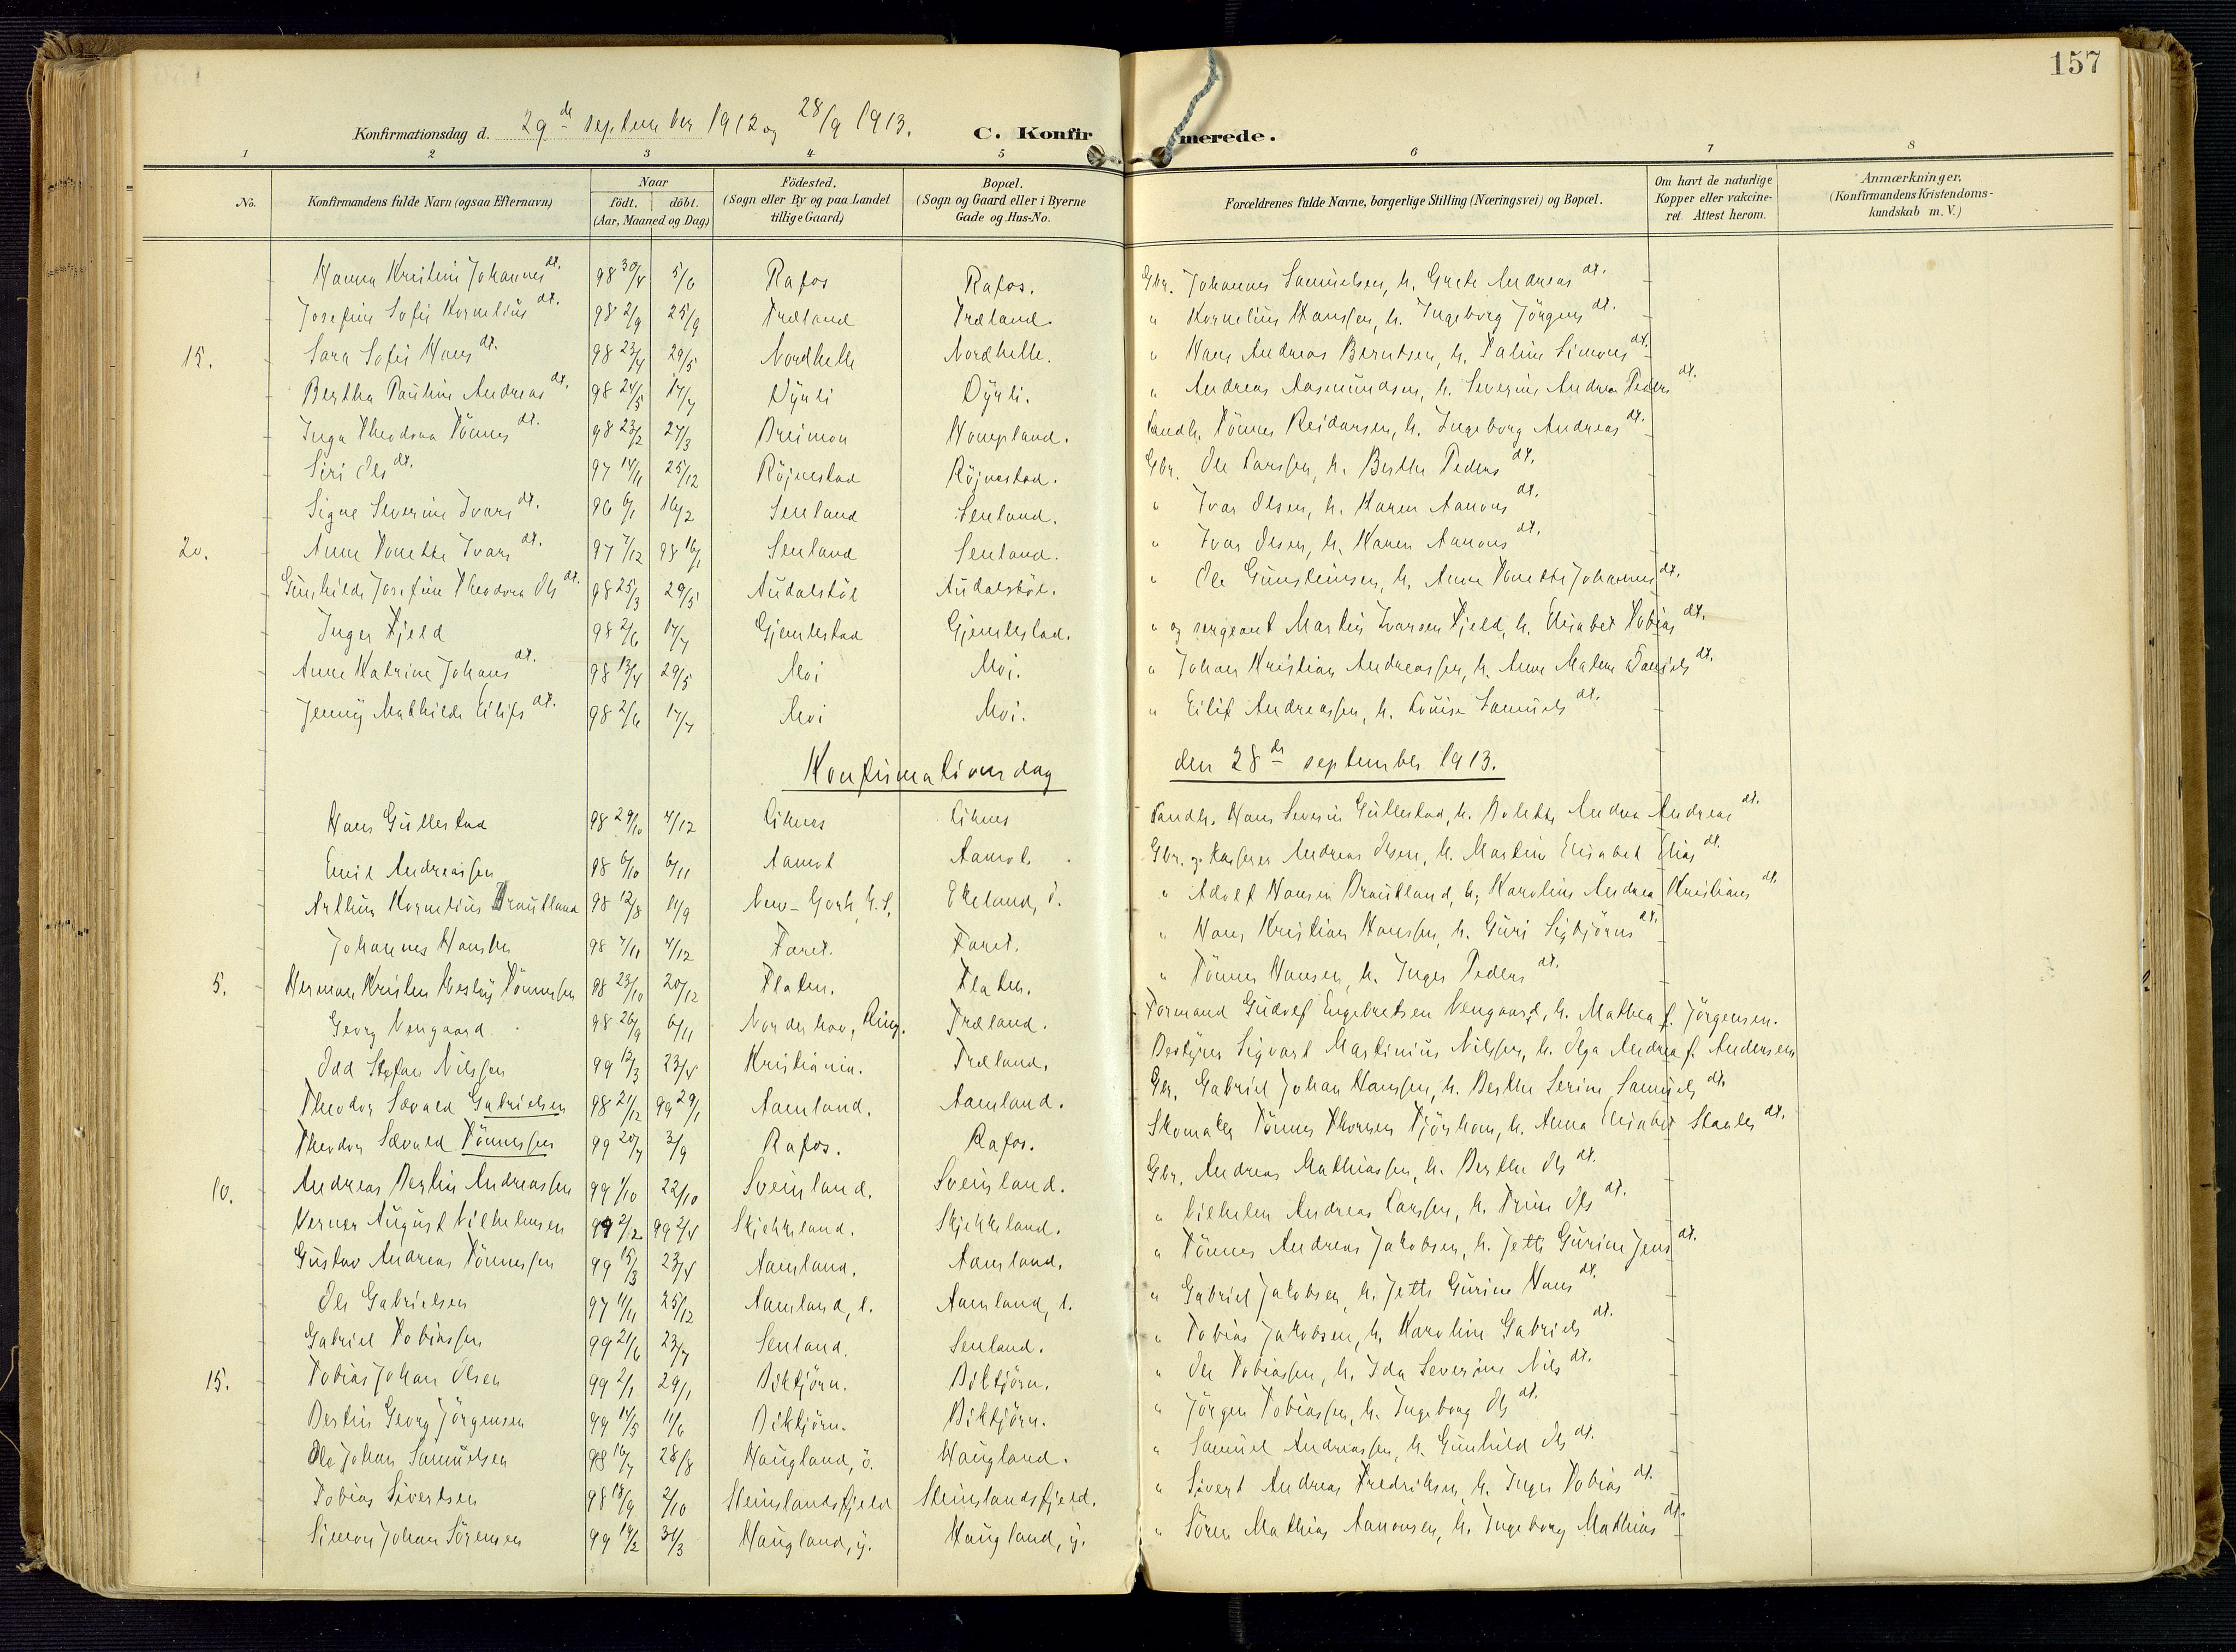 157
Konfirmationsdag d. 29de september 1912 og 28/9 1913. C. Konfirmerede.
1 2 3 4 5 6 7 8
No. Konfirmandens fulde Navn (ogsaa Efternavn) Naar födt. döbt. (Aar, Maaned og Dag) Födested. (Sogn eller By og paa Landet tillige Gaard) Bopæl. (Sogn og Gaard eller i Byerne Gade og Hus-No. Forældrenes fulde Navne, borgerlige Stilling (Næringsvei) og Bopæl. Om havt de naturlige Kopper eller vakcineret. Attest herom. Anmærkninger. (Konfirmandens Kristendomskundskab m. V.)
Hanna Kristine Johannes dt. 98 30/4 5/6 Rafos Rafos. Gbr. Johannes Samuelsen, h. Grete Andreas dt.
Josefine Sofie Kornelius dt. 98 2/9 25/9 Træland Træland. " Kornelius Hanssen, h. Ingeborg Jörgens dt.
15. Sara Sofie Hans dt. 98 23/4 29/5 Nordhelle Nordhelle. " Hans Andreas Berntsen, h. Taline Simons dt.
Bertha Pauline Andreas dt. 98 24/5 17/7 Dyrli Dyrli. " Andreas Aasmundsen, h. Severine Andrea Peders dt.
Inga Theodora Tönnes dt. 98 23/2 27/3 Dreimon Hompland. Landh. Tönnes Reidarsen, h. Ingeborg Andreas dt.
Siri Ols dt. 97 14/11 25/12 Röjnestad Röjnestad. Gbr. Ole Larssen, h. Berthe Peders dt.
Signe Severine Ivars dt. 96 6/1 16/2 Senland Senland. " Ivar Olsen, h. Karen Aanons dt.
20. Anne Tonette Ivars dt. 97 7/12 98 16/1 Senland Senland. " Ivar Olsen, h. Karen Aanons dt.
Gunhilde Josefine Theodora Ols dt. 98 25/3 29/5 Audalstöl Audalstöl. " Ole Gunsteinsen, h. Anne Tonette Johannes dt.
Inger Fjeld 98 2/6 17/7 Gjemlestad Gjemlestad. " og sergeant Martin Ivarsen Fjeld, h. Elisabet Tobias dt.
Anne Katrine Johans dt. 98 13/4 29/5 Moi Moi. " Johan Kristian Andreassen, h. Anne Malene Daniels dt.
Jenny Mathilde Eilifs dt. 98 2/6 17/7 Moi Moi. " Eilif Andreassen, h. Louise Samuels dt.
Konfirmationsdag den 28de september 1913.
Hans Gullestad 98 29/10 4/12 Liknes Liknes Landh. Hans Severin Gullestad, h. Bolette Andrea Andreas dt.
Emil Andreassen 98 6/10 6/11 Aamot Aamot. Gbr. og kasserer Andreas Olsen, h. Martine Elisabet Elias dt.
Arthur Kornelius Drautland 98 12/8 11/9 New-York, U.S. Ekeland, i. " Adolf Hansen Drautland, h. Karoline Andrea Kristians dt.
Johannes Hanssen 98 7/11 4/12 Faret. Faret. " Hans Kristian Hanssen, h. Guri Sigbjörns dt.
5. Herman Kristen Wesley Tönnessen 98 23/10 20/12 Flaten. Flaten. " Tönnes Hansen, h. Inger Peders dt.
Georg Vengaard. 98 26/9 6/11 Norderhov, Ring. Træland. Formand Gudolf Engebretsen Vengaard, h. Mathea f. Jörgensen.
Odd Stefan Nilssen 99 12/3 23/4 Kristiania. Træland. Bestyrer Sigvart Martinius Nilssen, h. Olga Andrea f. Andersen
Theodor Sævald Gabrielsen 98 21/12 99 29/1 Aamland. Aamland. Gbr. Gabriel Johan Hanssen, h. Berthe Serine Samuels dt.
Theodor Sævald Tönnessen 99 20/7 3/9 Rafos. Rafos. Skomaker Tönnes Thorsen Tjörhom, h. Anna Elisabet Stanley dt.
10. Andreas Bertin Andreassen 99 1/10 22/10 Sveinland. Sveinland. Gbr. Andreas Mathiassen, h. Berthe Ols dt.
Verner August Vilhelmsen 99 2/2 99 2/4 Skjekkeland. Skjekkeland. " Vilhelm Andreas Larssen, h. Trine Ols dt.
Gustav Andreas Tönnessen 99 15/3 23/4 Aamland. Aamland. " Tönnes Andreas Jakobsen, h. Jette Gurine Jens dt.
Ole Gabrielsen 97 11/11 25/12 Aamland, l. Aamland, l. " Gabriel Jakobsen, h. Jette Gurine Hans dt.
Gabriel Tobiassen 99 21/6 23/7 Senland. Senland. " Tobias Jakobsen, h. Karoline Gabriels dt.
15. Tobias Johan Olsen 99 2/1 29/1 Biktjörn. Biktjörn. " Ole Tobiassen, h. Ida Severine Nils dt.
Bertin Georg Jörgensen 99 14/5 11/6 Biktjörn. Biktjörn. " Jörgen Tobiassen, h. Ingeborg Ols dt.
Ole Johan Samuelsen 98 16/7 28/8 Haugland, ö. Haugland. " Samuel Andreassen, h. Gunhild Ols dt.
Tobias Sivertsen 98 18/9 2/10 Steinslandsfjeld Steinslandsfjeld. " Sivert Andreas Fredriksen, h. Inger Tobias dt.
Simon Johan Sörensen 99 19/2 31/3 Haugland, y. Haugland, y. " Sören Mathias Aanonsen, h. Ingeborg Mathias dt.